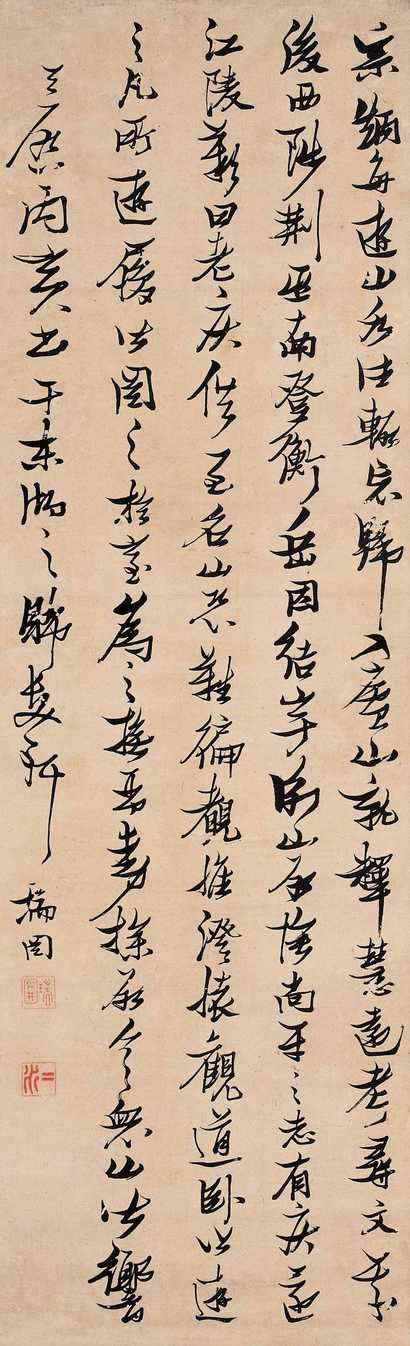 宗炳每遊山水往輒忘歸入廬山就釋慧遠考尋文義
後西陟荊巫南登衡岳因結宇衡山欲懷尚平之志有疾還
江陵歎曰老疾俱至名山恐難徧覩惟澄懷觀道臥以遊
之凡所遊履皆圖之於室為之撫琴動操欲令眾山皆響
天啓丙寅書于東湖之歸軒
瑞圖
二水